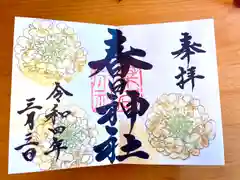 奉拝
春日神社
令和四年
三月三日